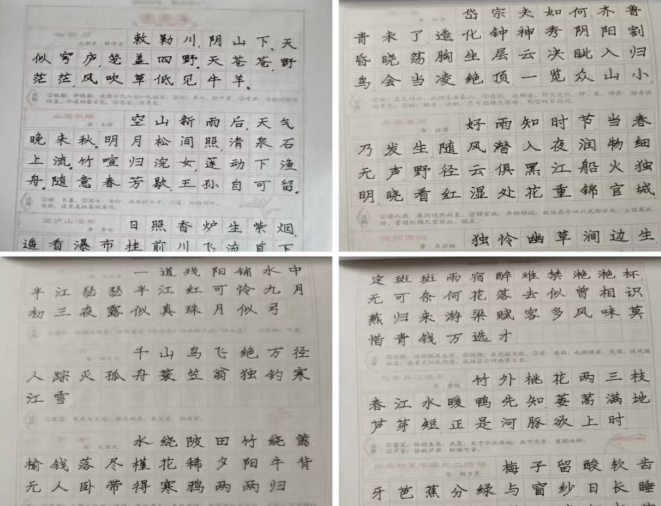 敕勒川,阴山下,天
似穹庐笼盖四野.天苍苍,野
茫茫风吹草低见牛羊.
空山新雨后,天气
晚来秋.明月松间照.清泉石
上流.竹喧归浣女.莲动下渔
舟.随意春芳歇.王孙自可留.
日照香炉生紫烟.
遥看瀑布挂前川飞流直下
岱宗夫如何齐鲁
青未了造化钟神秀阴阳割
昏晓荡胸生层云决眦入归
鸟会当凌绝顶一览众山小
好雨知时节当春
乃发生随风潜入夜润物细
无声野径云俱黑江船火独
明晓看红湿处花重锦官城
独怜幽草涧边生
一道残阳铺水中
半江瑟瑟半江红可怜九月
初三夜露似真珠月似弓
千山鸟飞绝万径
人踪灭孤舟蓑笠翁独钓寒
江雪
水绕陂田竹绕篱
榆钱落尽槿花稀夕阳牛背
无人卧带得寒鸦两两归
定斑斑雨宿醉难禁滟滟杯
无可奈何花落去似曾相识
燕归来游梁赋客多风味莫
惜青钱万选才
竹外桃花两三枝
春江水暖鸭先知蒌蒿满地
芦芽短正是河豚欲上时
梅子留酸软齿
牙芭蕉分绿与窗纱日长睡